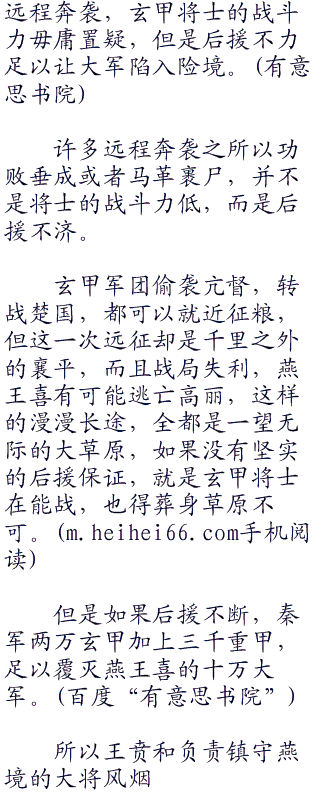 远程奔袭，玄甲将士的战斗
力毋庸置疑，但是后援不力
足以让大军陷入险境。(有意
思书院)
许多远程奔袭之所以功
败垂成或者马革裹尸，并不
是将士的战斗力低，而是后
援不济。
玄甲军团偷袭亢督，转
战楚国，都可以就近征粮，
但这一次远征却是千里之外
的襄平，而且战局失利，燕
王喜有可能逃亡高丽，这样
的漫漫长途，全都是一望无
际的大草原，如果没有坚实
的后援保证，就是玄甲将士
在能战，也得葬身草原不
可。(m.heihei66.com手机阅
读)
但是如果后援不断，秦
军两万玄甲加上三千重甲，
足以覆灭燕王喜的十万大
军。(百度“有意思书院”)
所以王贲和负责镇守燕
境的大将风烟